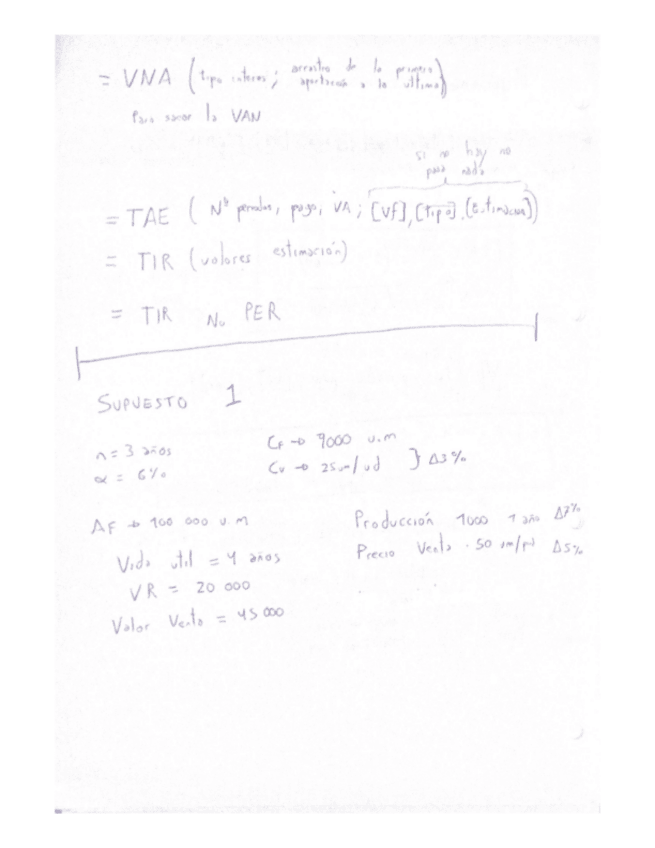 = VNA (tipo interes; arrastro de la primera aportación a la ultima)
Para sacar la VAN
si no hay no pasa nada
= TAE ( Nº periodos, pago, VA; [Vf], [tipo], [Estimación])
= TIR (valores estimación)
= TIR No PER
SUPUESTO 1
n = 3 años
α = 6%
CF → 9000 u.m
CV → 25um/ud } Δ3%
AF → 100 000 u.m
Vida util = 4 años
VR = 20 000
Valor Venta = 45 000
Producción 1000 1 año Δ7%
Precio Venta . 50 um/ Δ5%